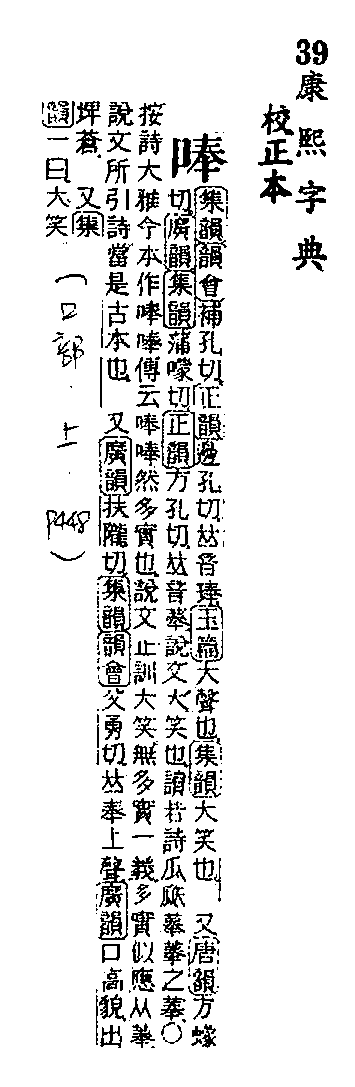 39康熙字典
校正本
唪
集韻韻會補孔切正韻邊孔切𠀤音琫玉篇大聲也集韻大笑也　又唐韻方蠓
切廣韻集韻蒲蠓切正韻方孔切𠀤音菶說文大笑也讀若詩瓜瓞菶菶之菶○
按詩大雅今本作唪唪傳云唪唪然多實也說文止訓大笑無多實一義多實似應从菶
說文所引詩當是古本也　又廣韻扶隴切集韻韻會父勇切𠀤奉上聲廣韻口高貌出
埤蒼　又集
韻一曰大笑
(口部.上.P448)